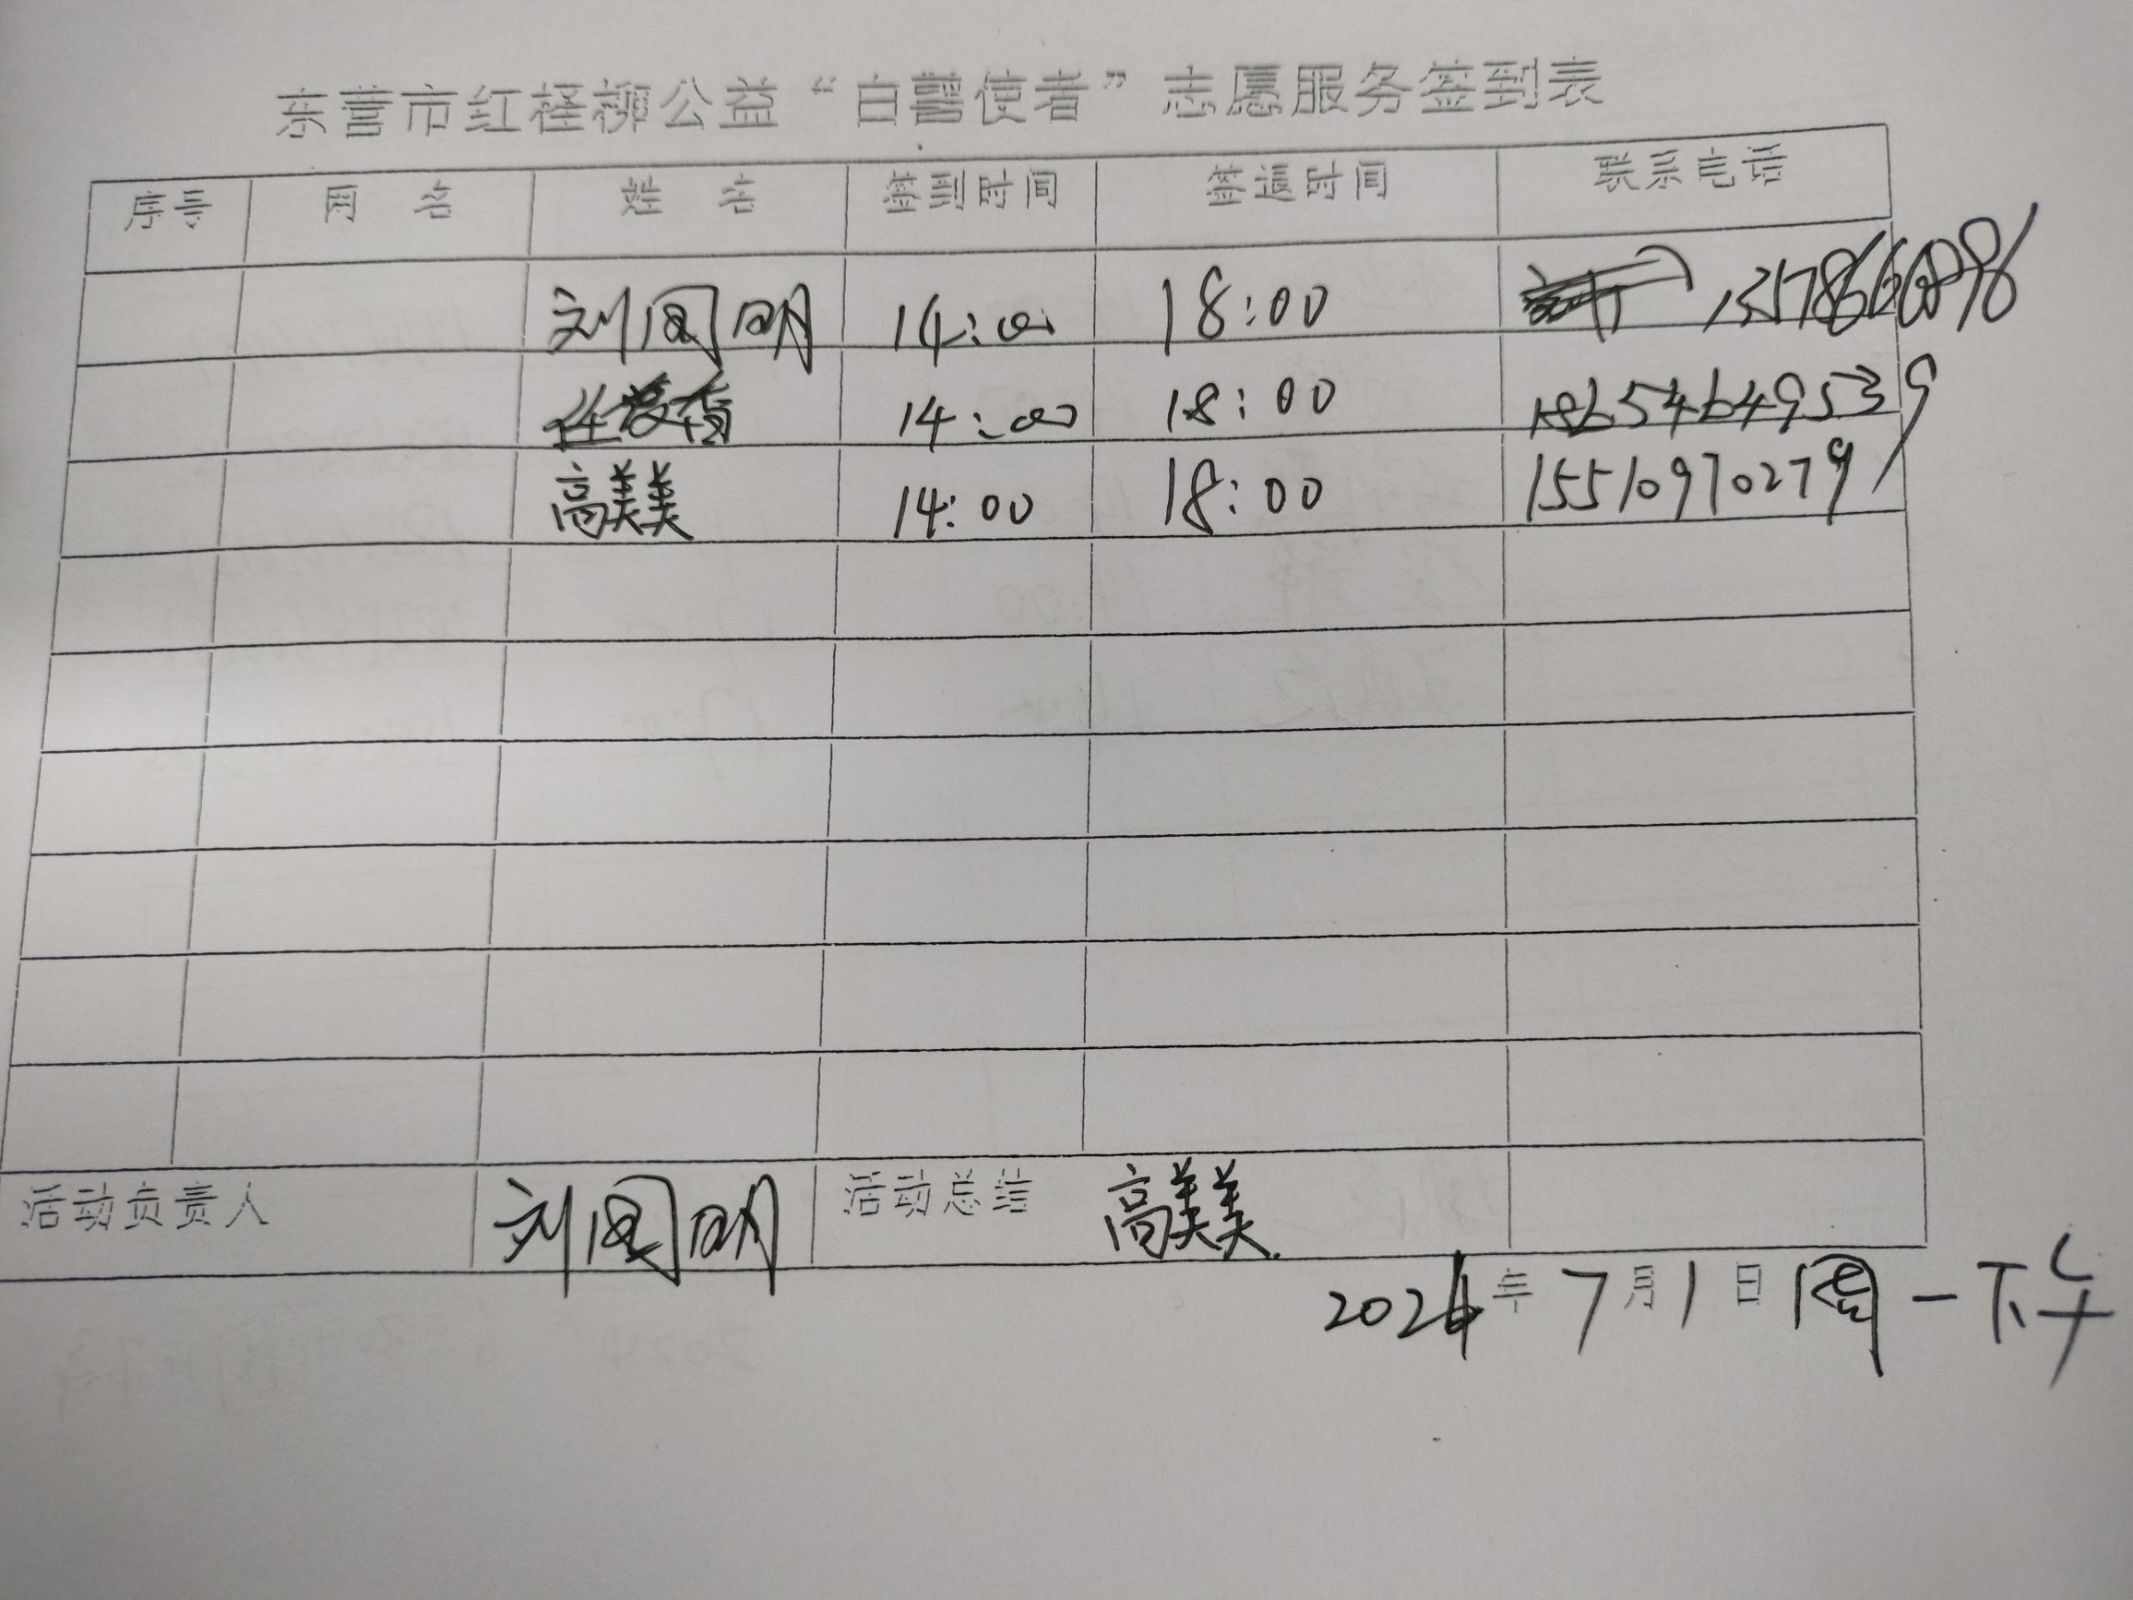 东营市红柽柳公益“白鹭使者”志愿服务签到表
序号 网 名 姓 名 签到时间 签退时间 联系电话
刘国明 14:00 18:00
14:00 18:00 18654649539
高美美 14:00 18:00 15510970279
活动负责人 刘国明 活动总结 高美美
2024年7月1日 周一下午